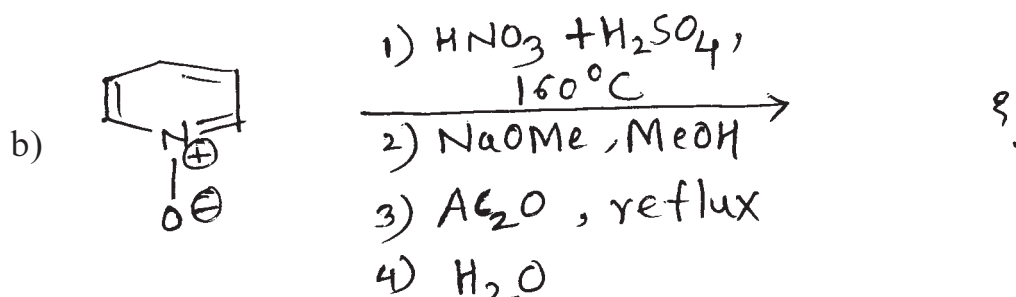 1) HNO3 + H2SO4,
160°C
b)
N
⊕
O ⊖
2) NaOMe, MeOH
3) Ac2O, reflux
4) H2O
?